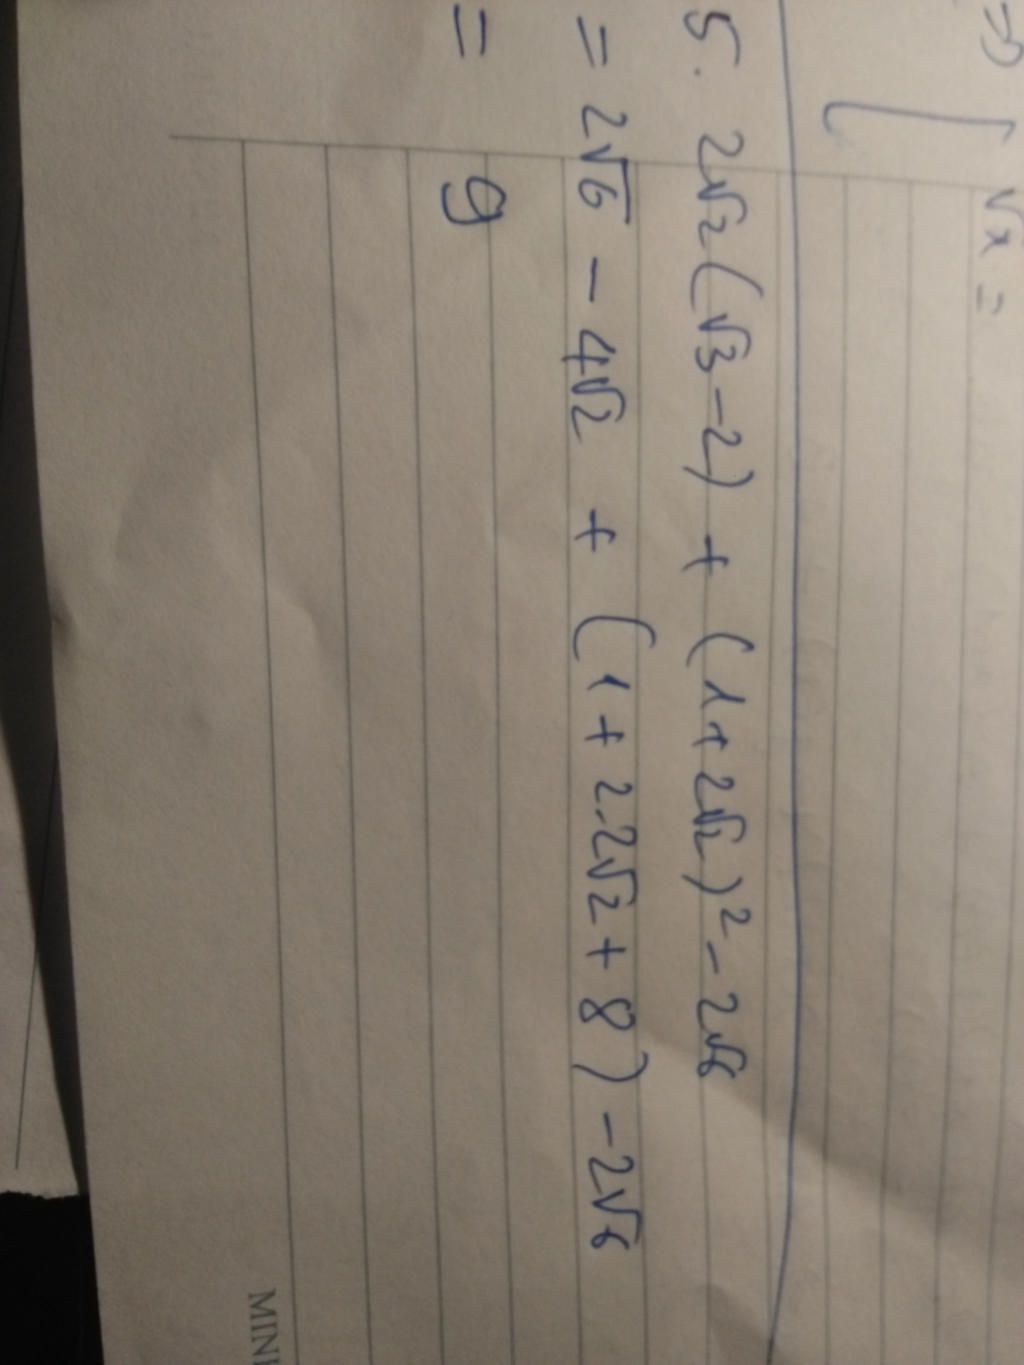 => [ √x =
5. 2√2(√3-2) + (1+2√2)² - 2√6
= 2√6 - 4√2 + (1+2.2√2+8) - 2√6
= 9
MINI